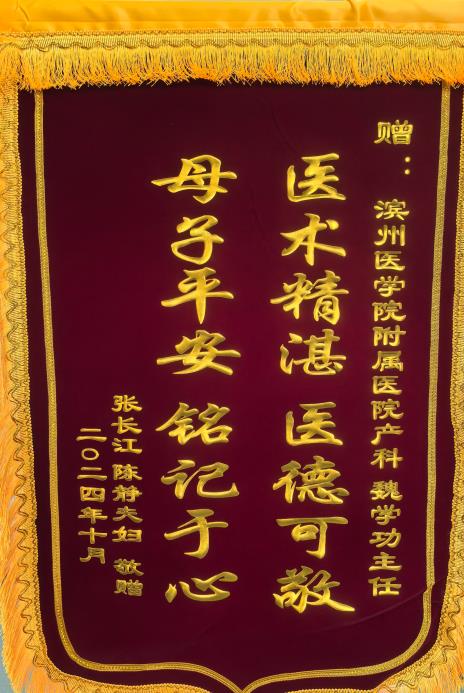 赠：滨州医学院附属医院产科 魏学功主任
医术精湛 医德可敬
母子平安 铭记于心
张长江 陈静夫妇 敬赠
二〇二四年十月